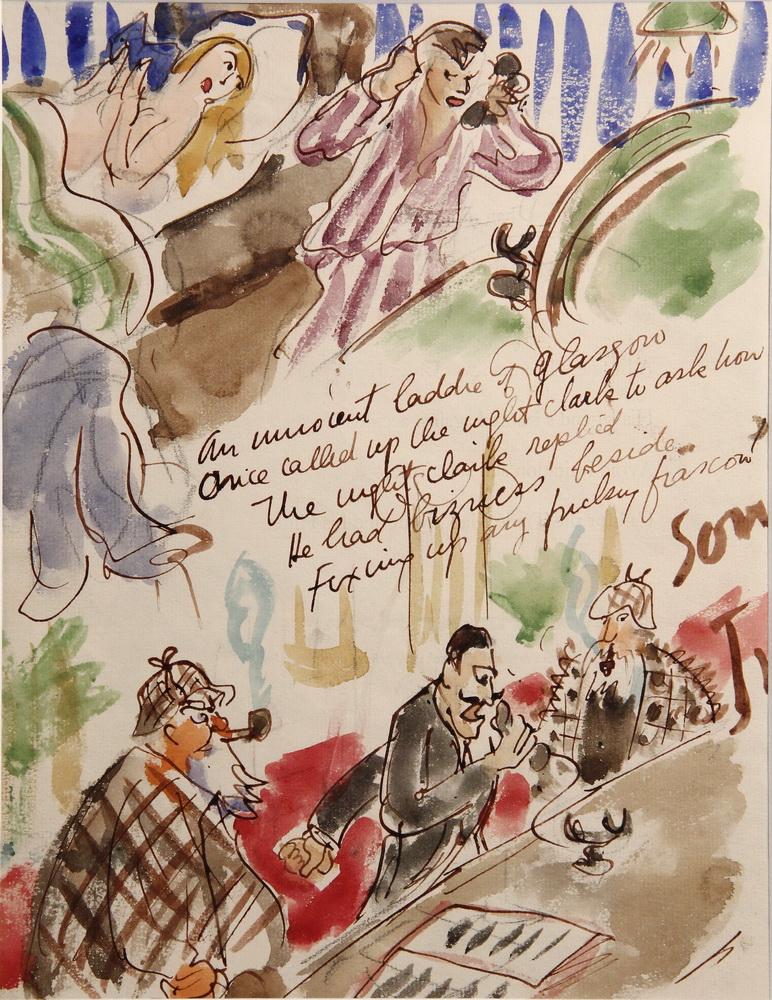 An innocent laddie of Glasgow
Once called up the night clark to ask how
The night clark replied
He had bizness beside
Fixing up any fucksy fiascow
Som
T